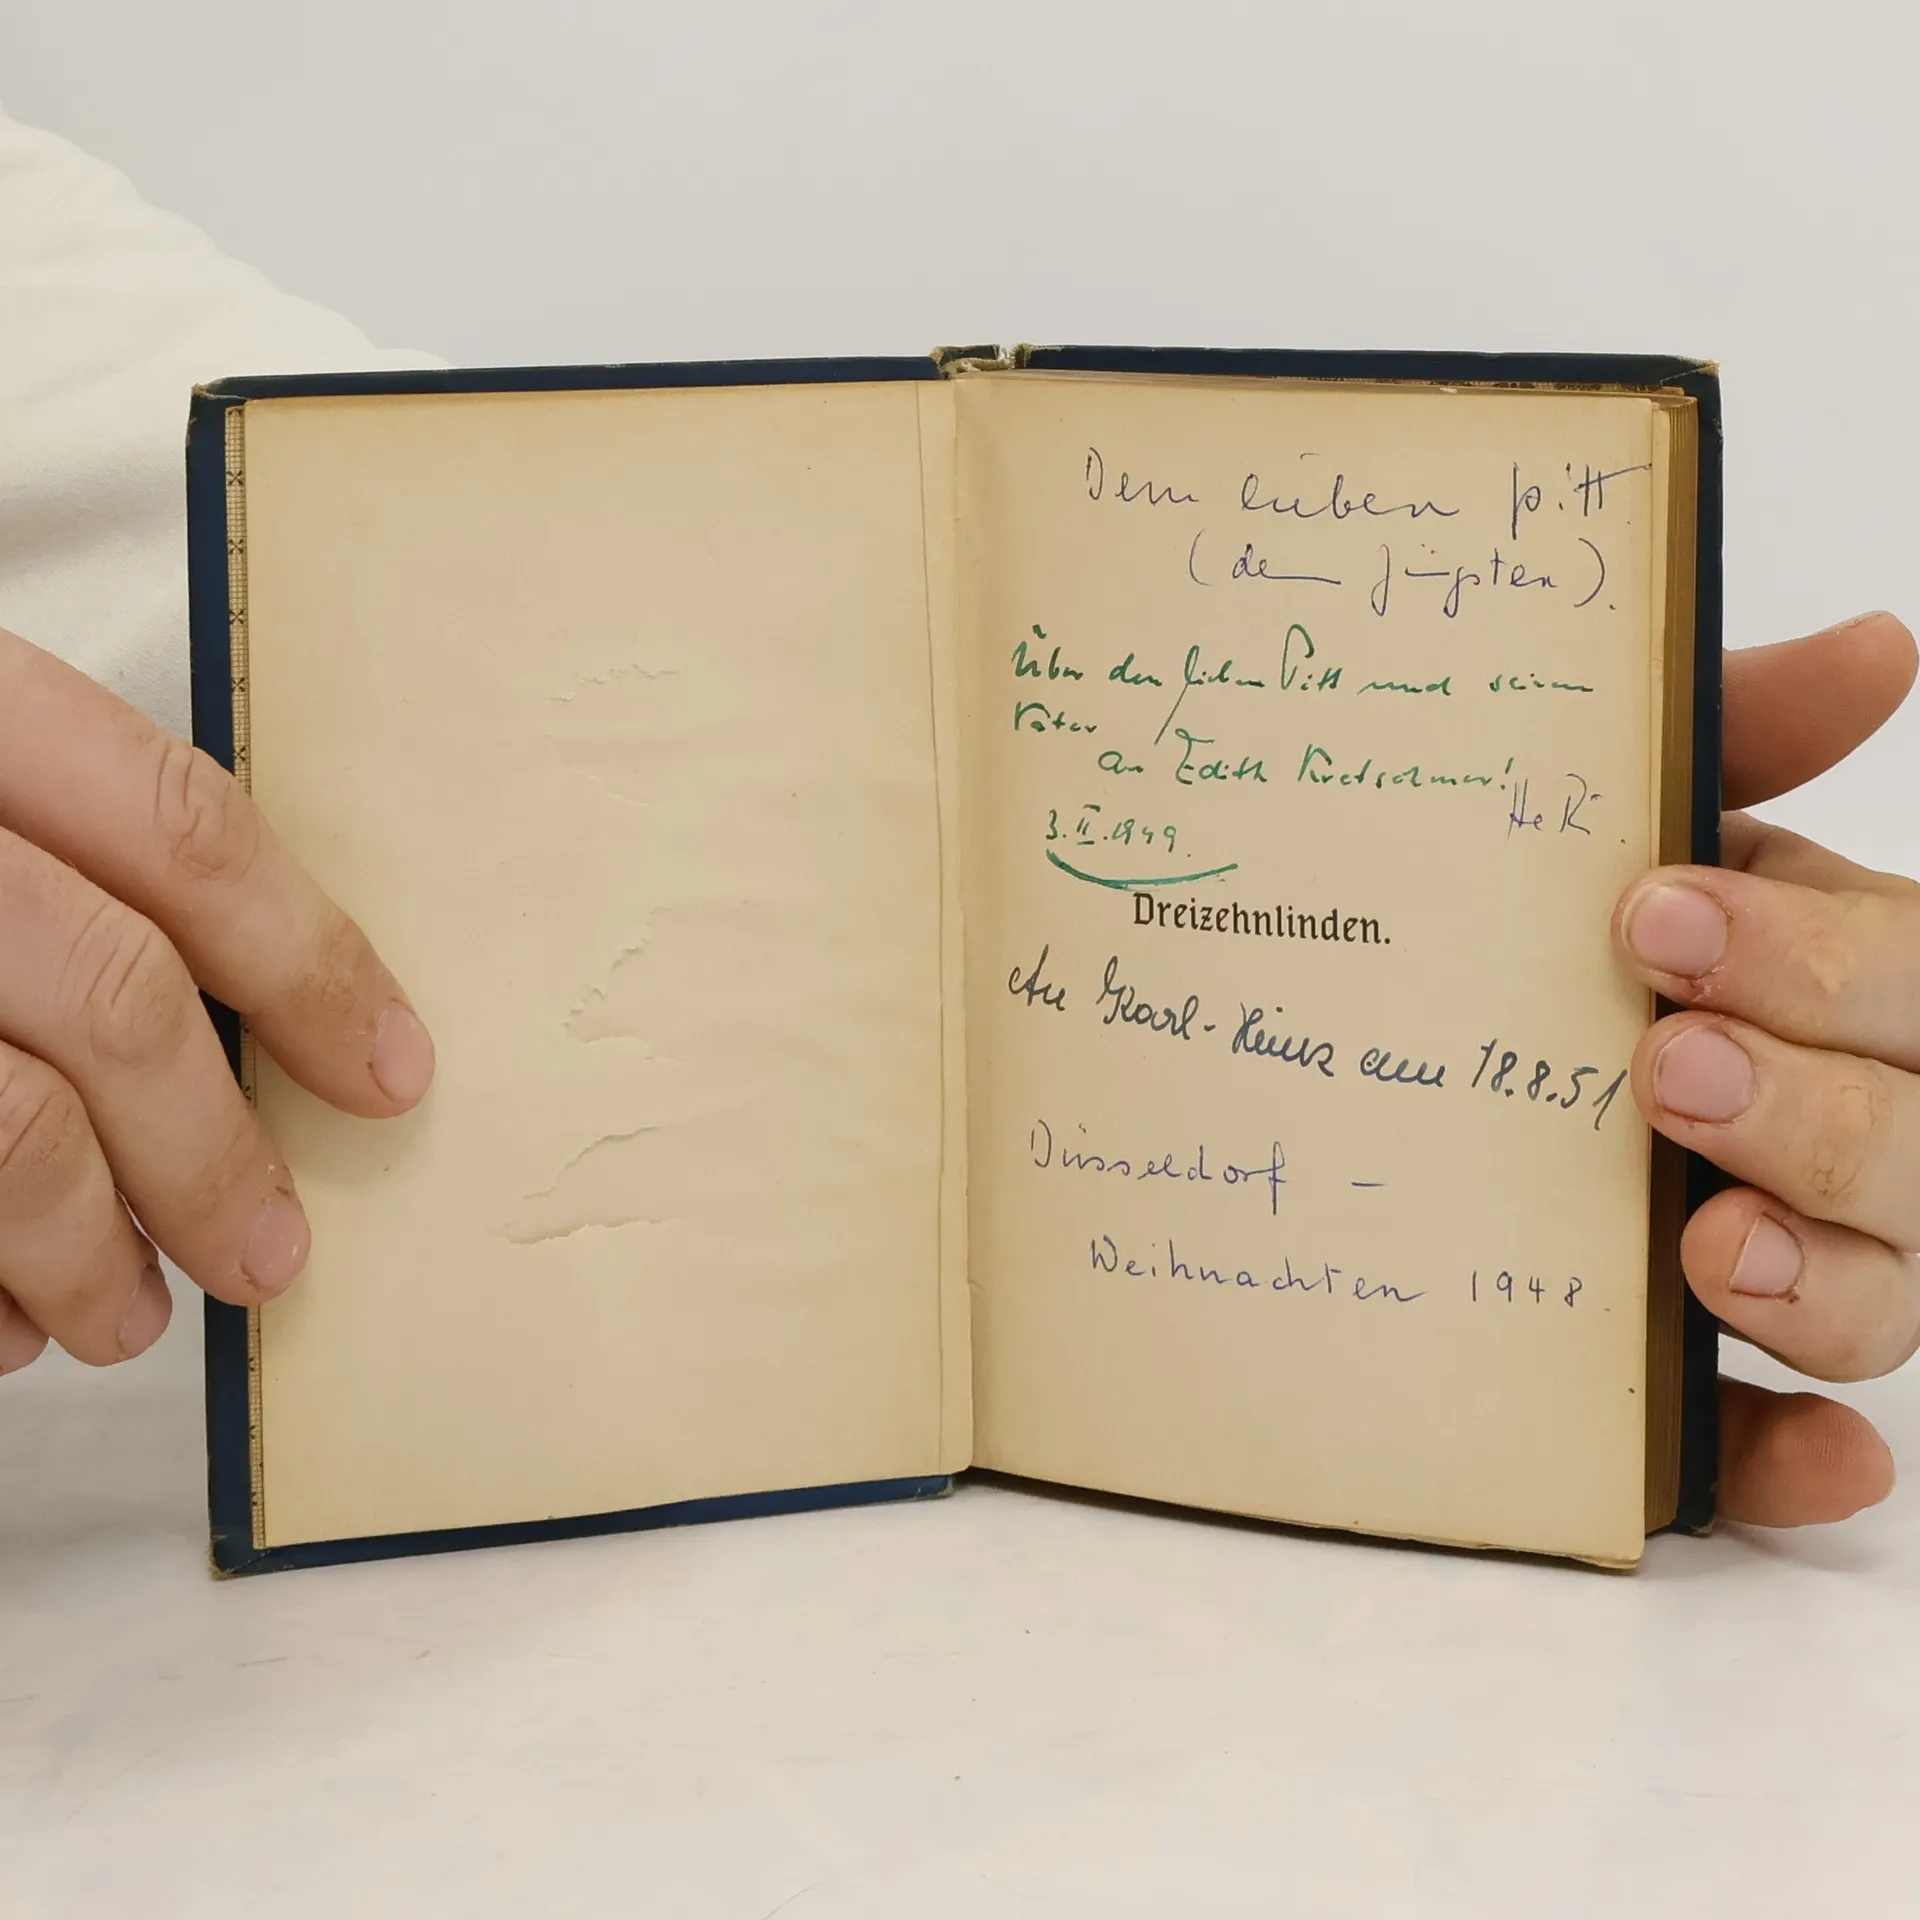 Dem lieben Pitt
(dem Jüngsten).
Über den lieben Pitt und seinen
Vater
an Edith Kretschmer!
HeRi.
3.II.1949.
Dreizehnlinden.
An Karl-Heinz am 18.8.51
Düsseldorf –
Weihnachten 1948.